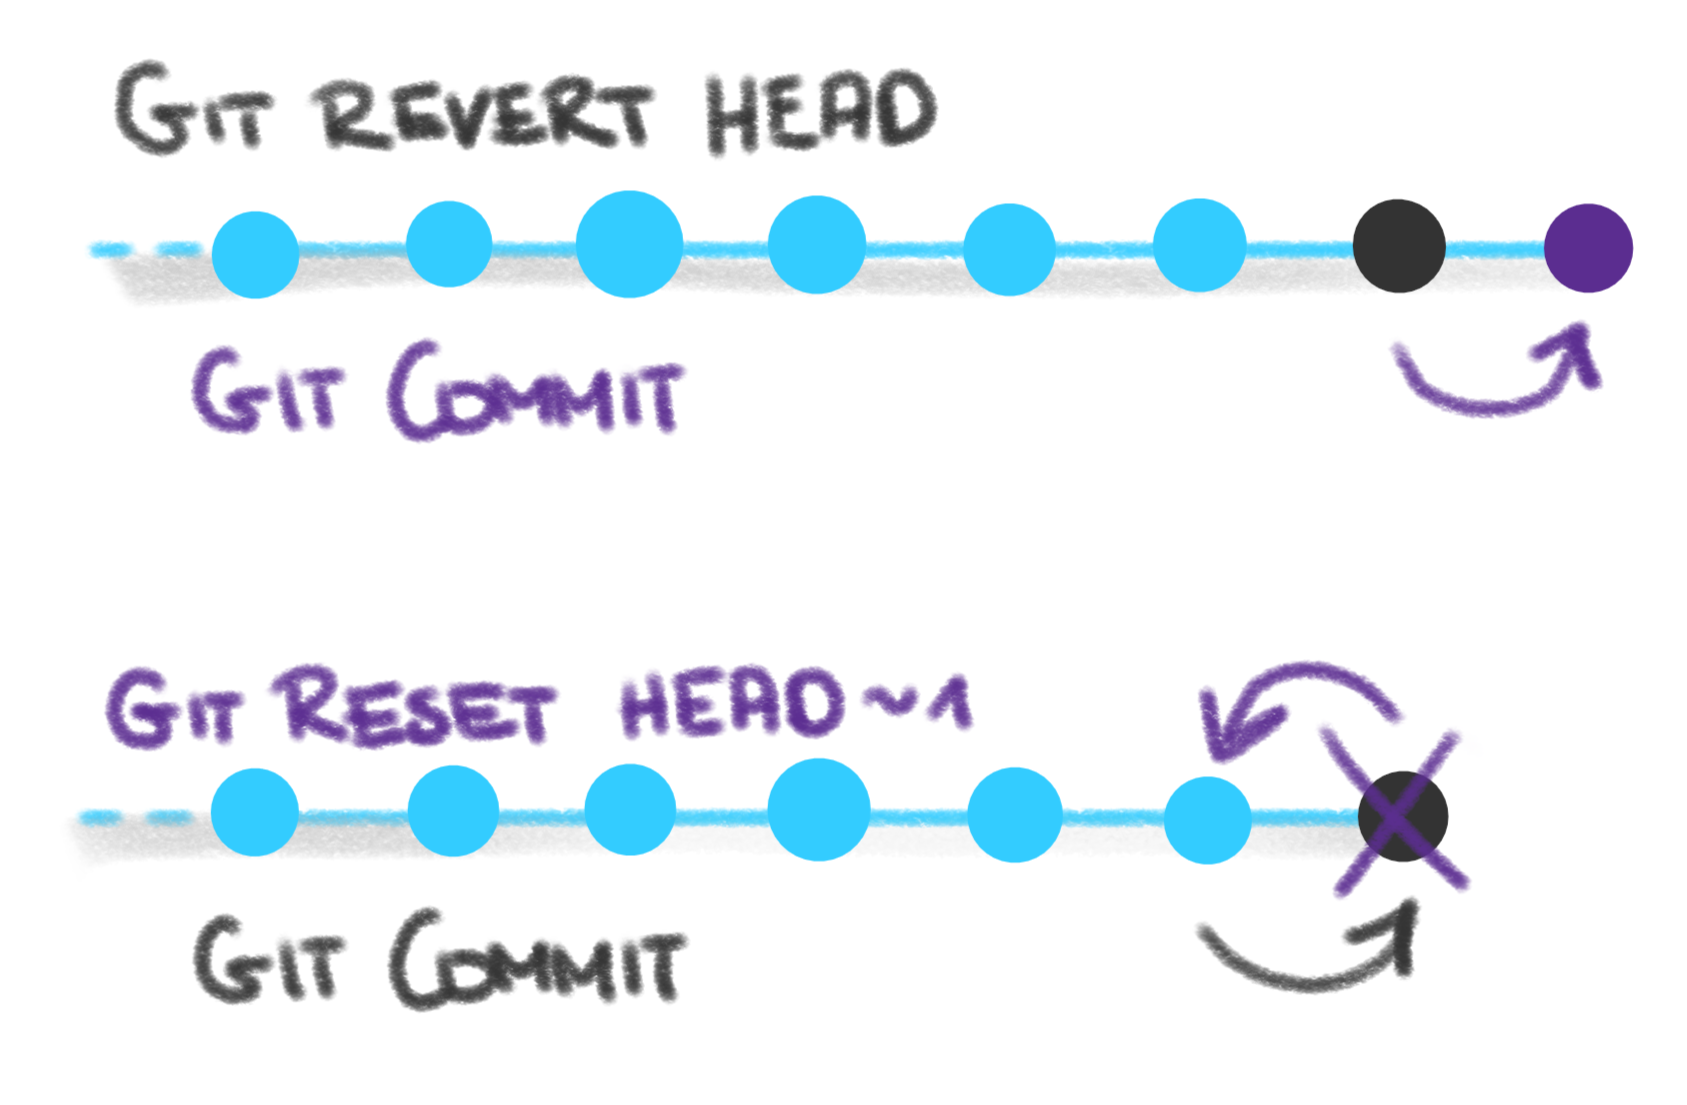 GIT REVERT HEAD
GIT COMMIT
GIT RESET HEAD~1
GIT COMMIT